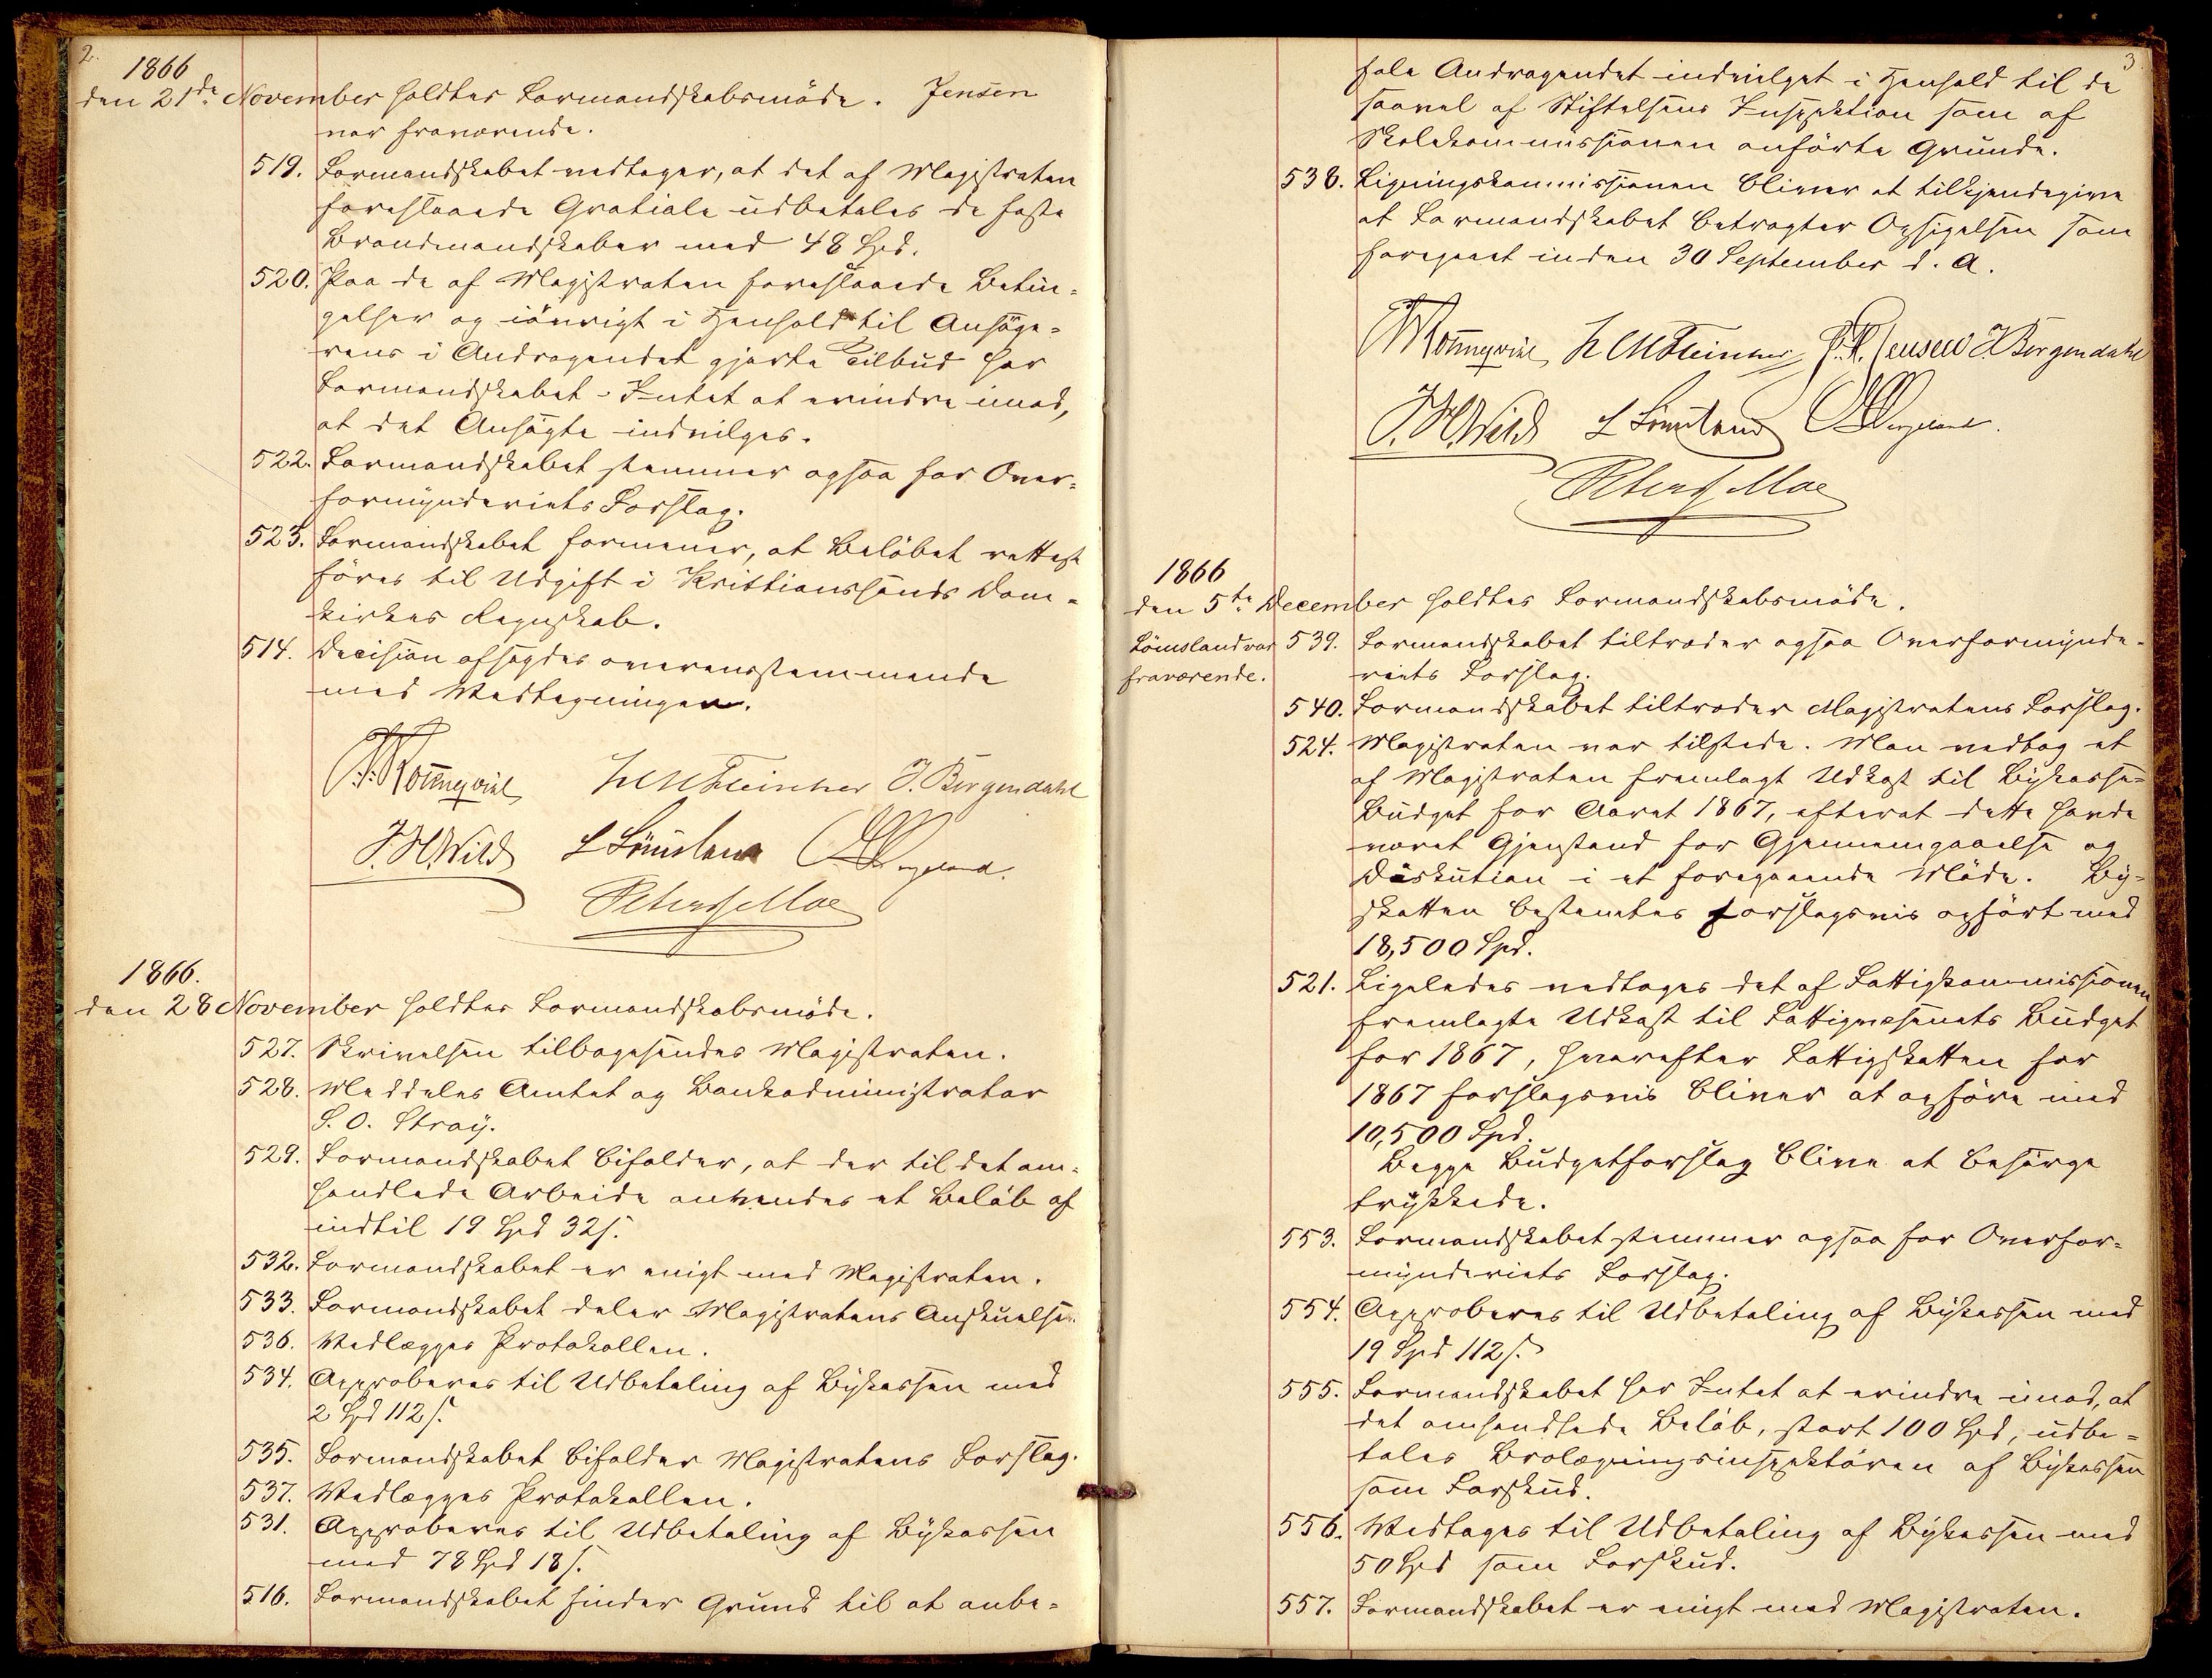 2.
1866
den 21de November holdtes Formandskabsmöde. Jensen
var fraværende.
519. Formandskabet vedtager, at det af Magistraten
foreslaaede Gratiale udbetales de faste
Brandmandskaber med 48 Spd.
520. Paa de af Magistraten foreslaaede Betin-
gelser og iövrigt i Henhold til Ansöge-
rens i Andragendet gjorte Tilbud har
Formandskabet Intet at erindre imod,
at det Ansögte indvilges.
522. Formandskabet stemmer ogsaa for Over-
formynderiets Forslag.
523. Formandskabet formener, at Belöbet rettest
föres til Udgift i Kristianssands Dom-
kirkes Regnskab.
514. Decision afsagdes overensstemmende
med Vedtagningen.
Rönnqvist H M Fleischer J. Bergendahl
J. H. Wild L Lömsland
Peter Moe
1866.
den 28 November holdtes Formandskabsmöde.
527. Skrivelsen tilbagesendes Magistraten.
528. Meddeles Amtet og Bankadministrator
S. O. Stray.
529. Formandskabet bifalder, at der til det om-
handlede Arbeide anvendes et Belöb af
indtil 19 Spd 32 s.
532. Formandskabet er enigt med Magistraten.
533. Formandskabet deler Magistratens Anskuelse.
536. Vedlægges Protokollen.
534. Approberes til Udbetaling af Bykassen med
2 Spd 112 s.
535. Formandskabet bifalder Magistratens Forslag.
537. Vedlægges Protokollen.
531. Approberes til Udbetaling af Bykassen
med 78 Spd 18 s.
516. Formandskabet finder Grund til at anbe-
3
fale Andragendet indvilget i Henhold til de
saavel af Stiftelsens Inspektion som af
Skolekommissionen anförte Grunde.
538. Ligningskommissionen bliver at tilkjendegive
at Formandskabet betragter Opsigelsen som
foregaaet inden 30 September d. A.
Rönnqvist H M Fleischer Jensen J. Bergendahl
J. H. Wild L Lömsland
Peter Moe
1866
den 5te December holdtes Formandskabsmöde.
Lömsland var
fraværende.
539. Formandskabet tiltræder ogsaa Overformynde-
riets Forslag.
540. Formandskabet tiltræder Magistratens Forslag.
524. Magistraten var tilstede. Man vedtog et
af Magistraten fremlagt Udkast til Bykasse-
Budget for Aaret 1867, efterat dette havde
været Gjenstand for Gjennemgaaelse og
Diskution i et foregaaende Möde. By-
skatten bestemtes forslagsvis opfört med
18,500 Spd.
521. Ligeledes vedtoges det af Fattigkommissionen
fremlagte Udkast til Fattigvæsenets Budget
for 1867, hvorefter Fattigskatten for
1867 forslagsvis bliver at opföre med
10,500 Spd.
Begge Budgetforslag blive at besörge
trykkede.
553. Formandskabet stemmer ogsaa for Overfor-
mynderiets Forslag.
554. Approberes til Udbetaling af Bykassen med
19 Spd 112 s.
555. Formandskabet har Intet at erindre imod, at
det omhandlede Belöb, stort 100 Spd, udbe-
tales Brolægningsinspektören af Bykassen
som Forskud.
556. Vedtages til Udbetaling af Bykassen med
50 Spd som Forskud.
557. Formandskabet er enigt med Magistraten.